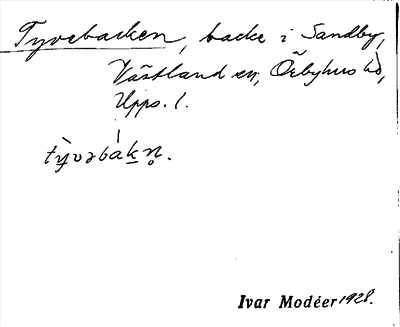 Tyvebacken, backe i Sandby,
Västland sn, Örbyhus hd,
Upps. l.
tỳvəbàkn̥.
Ivar Modéer 1928.